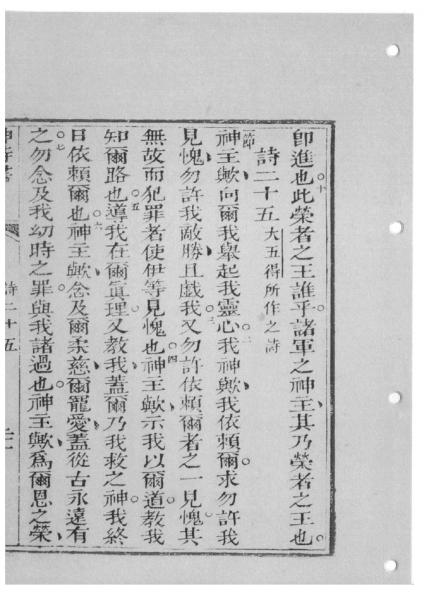 卽進也○十此榮者之王誰乎諸軍之神主其乃榮者之王也○
詩二十五 大五得所作之詩
節神主歟向爾我舉起我靈心○二我神歟我依賴爾○求勿許我
見愧勿許我敵勝且戲我○三又勿許依賴爾者之一見愧其
無故而犯罪者使伊等見愧也○四神主歟示我以爾道教我
知爾路也○五導我在爾眞理又教我蓋爾乃我救之神○我終
日依賴爾也○六神主歟念及爾柔慈爾寵愛蓋從古永遠有
之○七勿念及我幼時之罪○與我諸過也○神主歟爲爾恩之榮
詩二十五